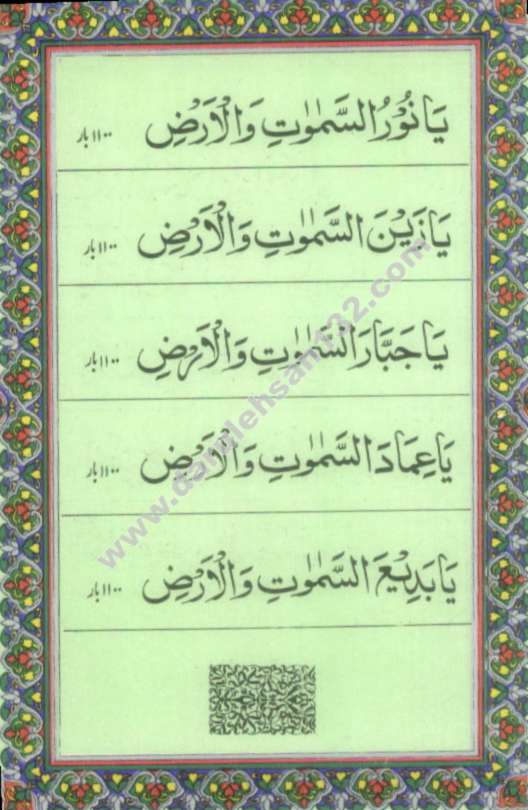 يَا نُوْرُ السَّمٰوٰتِ وَالْاَرْضِ ۱۱۰۰ بار
يَا زَيْنَ السَّمٰوٰتِ وَالْاَرْضِ ۱۱۰۰ بار
يَا جَبَّارَ السَّمٰوٰتِ وَالْاَرْضِ ۱۱۰۰ بار
يَا عِمَادَ السَّمٰوٰتِ وَالْاَرْضِ ۱۱۰۰ بار
يَا بَدِيْعَ السَّمٰوٰتِ وَالْاَرْضِ ۱۱۰۰ بار
www.darulehsan132.com